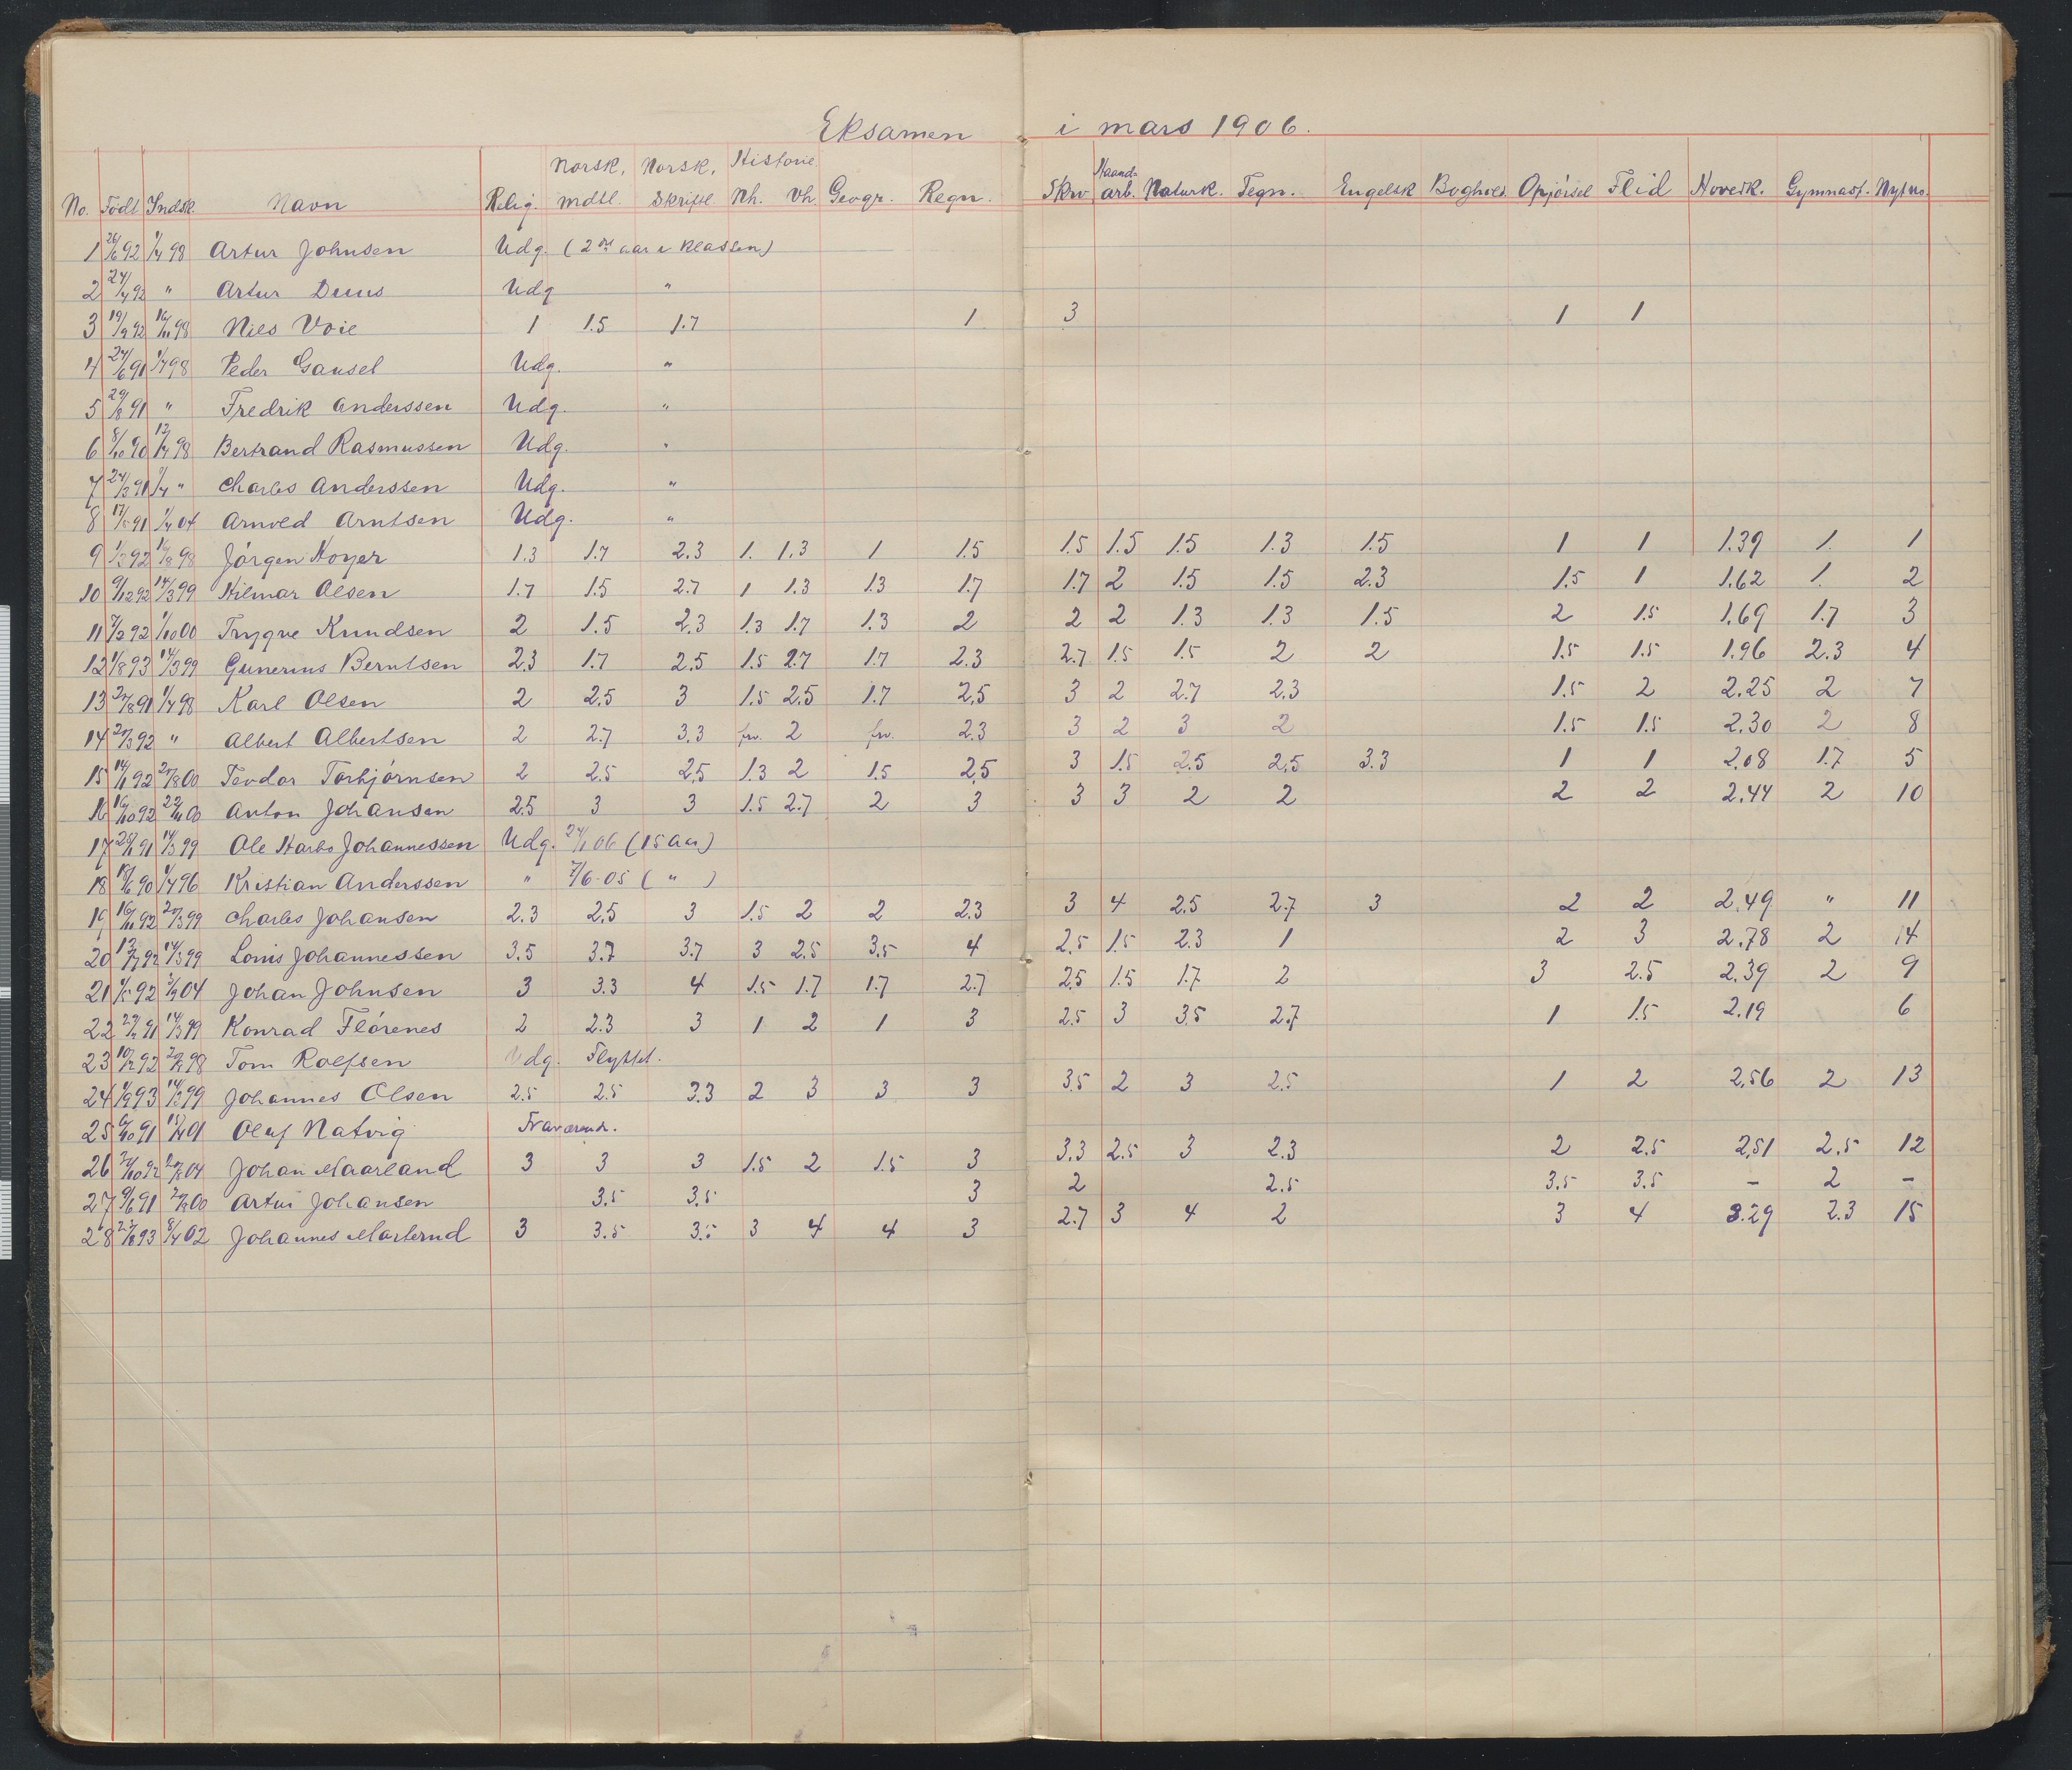 Eksamen i mars 1906.
No. Födt Indsk. Navn Relig. Norsk, mdtl. Norsk, Skriftl. Historie Nh. Vh. Geogr. Regn. Skriv Haandarb. Naturk. Tegn. Engelsk Boghold. Opførsel Flid Hovedk. Gymnast. Nyt no.
1 26/6 92 1/4 98 Artur Johnsen Udg. (2 det aar i klassen)
2 24/4 92 " Artur Duus Udg "
3 19/9 92 16/11 98 Nils Voie 1 1.5 1.7 1 3 1 1
4 24/6 91 1/4 98 Peder Gausel Udg. "
5 29/8 91 " Fredrik Anderssen Udg. "
6 8/10 90 13/4 98 Bertrand Rasmussen Udg. "
7 24/3 91 1/4 " Charles Anderssen Udg. "
8 17/5 91 1/4 04 Arnold Arntsen Udg. "
9 1/2 92 16/8 98 Jörgen Hoyer 1.3 1.7 2.3 1. 1.3 1 1.5 1.5 1.5 1.5 1.3 1.5 1 1 1.39 1. 1
10 9/12 92 14/3 99 Hilmar Olsen 1.7 1.5 2.7 1 1.3 1.3 1.7 1.7 2 1.5 1.5 2.3 1.5 1 1.62 1. 2
11 7/2 92 1/10 00 Trygve Knudsen 2 1.5 2.3 1.3 1.7 1.3 2 2 2 1.3 1.3 1.5 2 1.5 1.69 1.7 3
12 1/8 93 14/3 99 Gunerius Berntsen 2.3 1.7 2.5 1.5 2.7 1.7 2.3 2.7 1.5 1.5 2 2 1.5 1.5 1.96 2.3 4
13 27/8 91 1/4 98 Karl Olsen 2 2.5 3 1.5 2.5 1.7 2.5 3 2 2.7 2.3 1.5 2 2.25 2 7
14 27/3 92 " Albert Albertsen 2 2.7 3.3 frv. 2 frv. 2.3 3 2 3 2 1.5 1.5 2.30 2 8
15 14/1 92 27/8 00 Teodor Torbjörnsen 2 2.5 2.5 1.3 2 1.5 2.5 3 1.5 2.5 2.5 3.3 1 1 2.08 1.7 5
16 16/10 92 29/11 00 Anton Johansen 2.5 3 3 1.5 2.7 2 3 3 3 2 2 2 2 2.44 2 10
17 25/1 91 14/3 99 Ole Harbo Johannessen Udg. 24/1 06 (15 aar)
18 18/6 90 1/4 96 Kristian Anderssen " 7/6-05 ( " )
19 16/10 92 27/3 99 Charles Johansen 2.3 2.5 3 1.5 2 2 2.3 3 4 2.5 2.7 3 2 2 2.49 " 11
20 13/7 92 14/3 99 Louis Johannessen 3.5 3.7 3.7 3 2.5 3.5 4 2.5 1.5 2.3 1 2 3 2.78 2 14
21 4/5 92 2/9 04 Johan Johnsen 3 3.3 4 1.5 1.7 1.7 2.7 2.5 1.5 1.7 2 3 2.5 2.39 2 9
22 29/11 91 14/3 99 Konrad Flörenes 2 2.3 3 1 2 1 3 2.5 3 3.5 2.7 1 1.5 2.19 6
23 10/12 92 20/8 98 Tom Rolfsen Udg. Flyttet.
24 1/9 93 14/3 99 Johannes Olsen 2.5 2.5 3.3 2 3 3 3 3.5 2 3 2.5 1 2 2.56 2 13
25 6/10 91 15/4 01 Olaf Natvig Fraværend.
26 24/10 92 20/8 04 Johan Maarland 3 3 3 1.5 2 1.5 3 3.3 2.5 3 2.3 2 2.5 2.51 2.5 12
27 9/6 91 00 Artur Johansen 3.5 3.5 3 2 2.5 3.5 3.5 — 2 —
28 93 8/4 02 Johannes Marterud 3 3.5 3.5 3 4 4 3 2.7 3 4 2 3 4 3.29 2.3 15